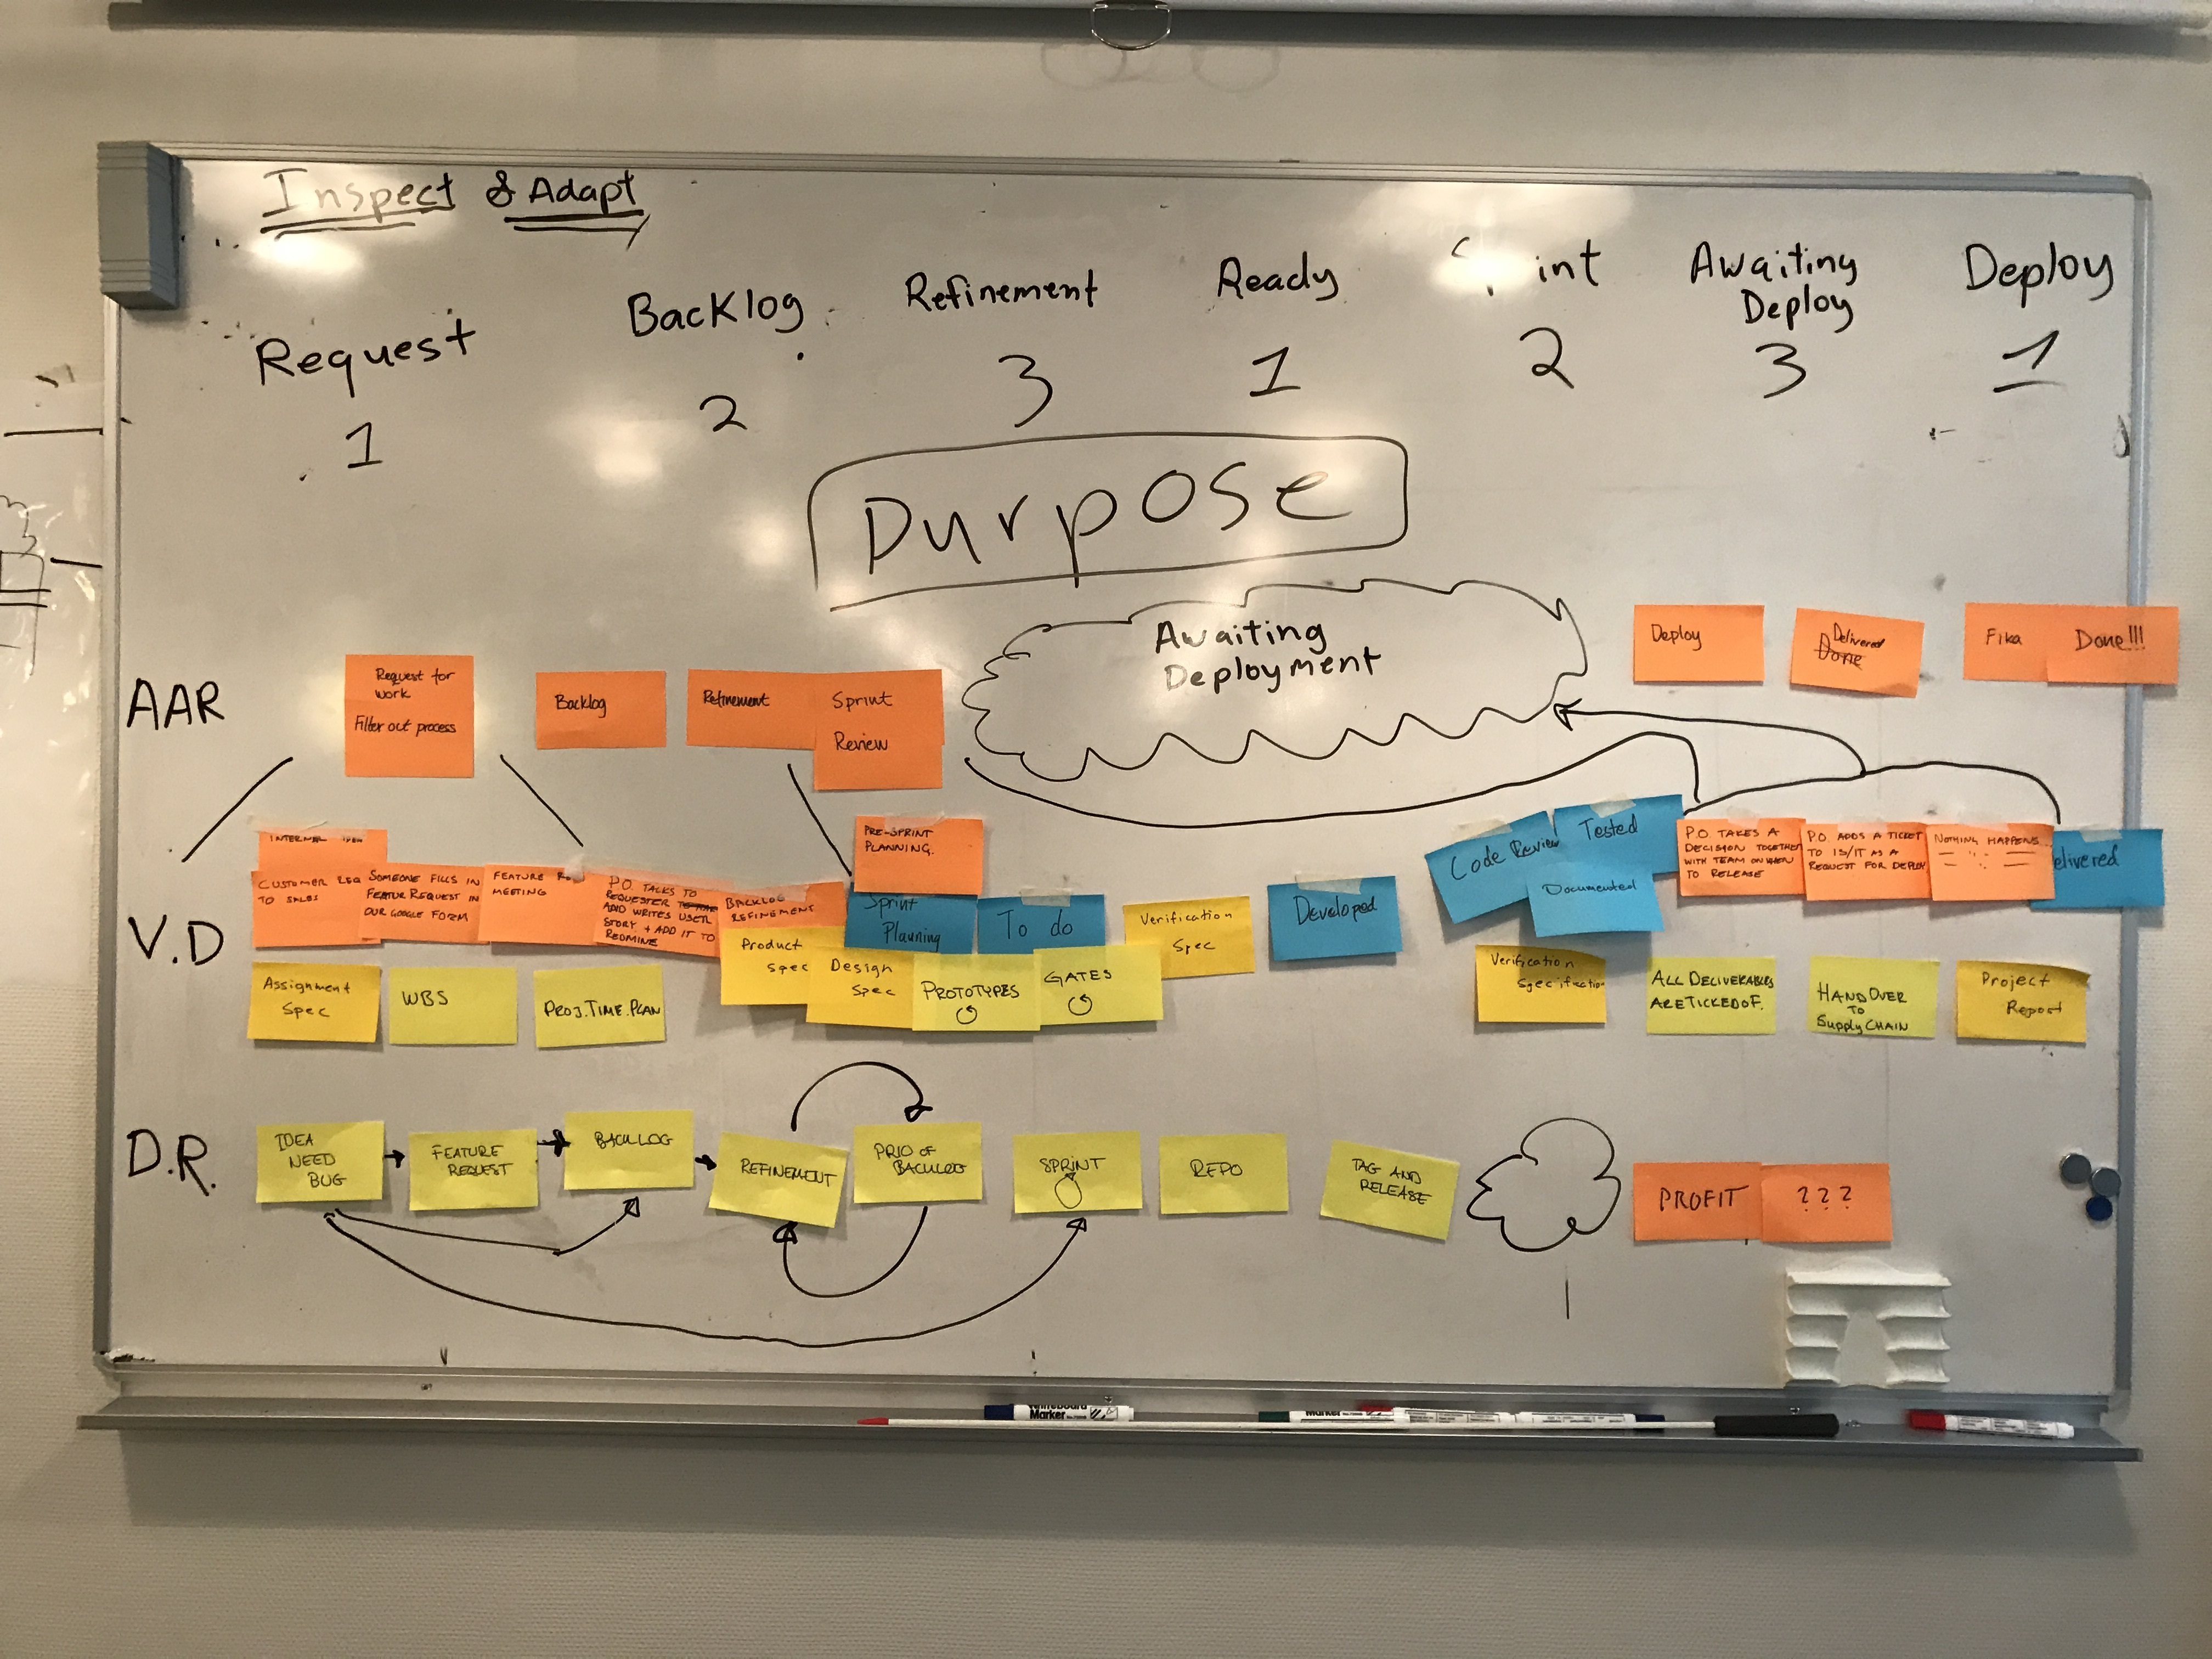 Inspect & Adapt
Request
Backlog
Refinement
Ready
int
Awaiting
Deploy
Deploy
1
2
3
1
2
3
1
Purpose
AAR
Request for
work
Filter out process
Backlog
Refinement
Sprint
Review
Awaiting
Deployment
Deploy
Delivered
Done
Fika
Done!!!
V.D
INTERNAL IDEA
CUSTOMER REQ
TO SALES
SOMEONE FILLS IN
FEATUR REQUEST IN
OUR GOOGLE FORM
FEATURE
MEETING
P.O. TALKS TO
REQUESTER
AND WRITES USER
STORY + ADD IT TO
REDMINE
BACKLOG
REFINEMENT
PRE-SPRINT
PLANNING.
Sprint
Planning
To do
Verification
Spec
Developed
Code Review
Tested
Documented
P.O. TAKES A
DECISION TOGETHER
WITH TEAM ON WHEN
TO RELEASE
P.O. ADDS A TICKET
TO IS/IT AS A
REQUEST FOR DEPLOY
NOTHING HAPPENS...
elivered
Assignment
Spec
WBS
PROJ.TIME.PLAN
Product
Spec
Design
Spec
PROTOTYPES
GATES
Verification
Specification
ALL DELIVERABLES
ARE TICKED OF.
HAND OVER
TO
Supply CHAIN
Project
Report
D.R.
IDEA
NEED
BUG
FEATURE
REQUEST
BACKLOG
REFINEMENT
PRIO OF
BACKLOG
SPRINT
REPO
TAG AND
RELEASE
PROFIT
???
Whiteboard
Marker
Marker